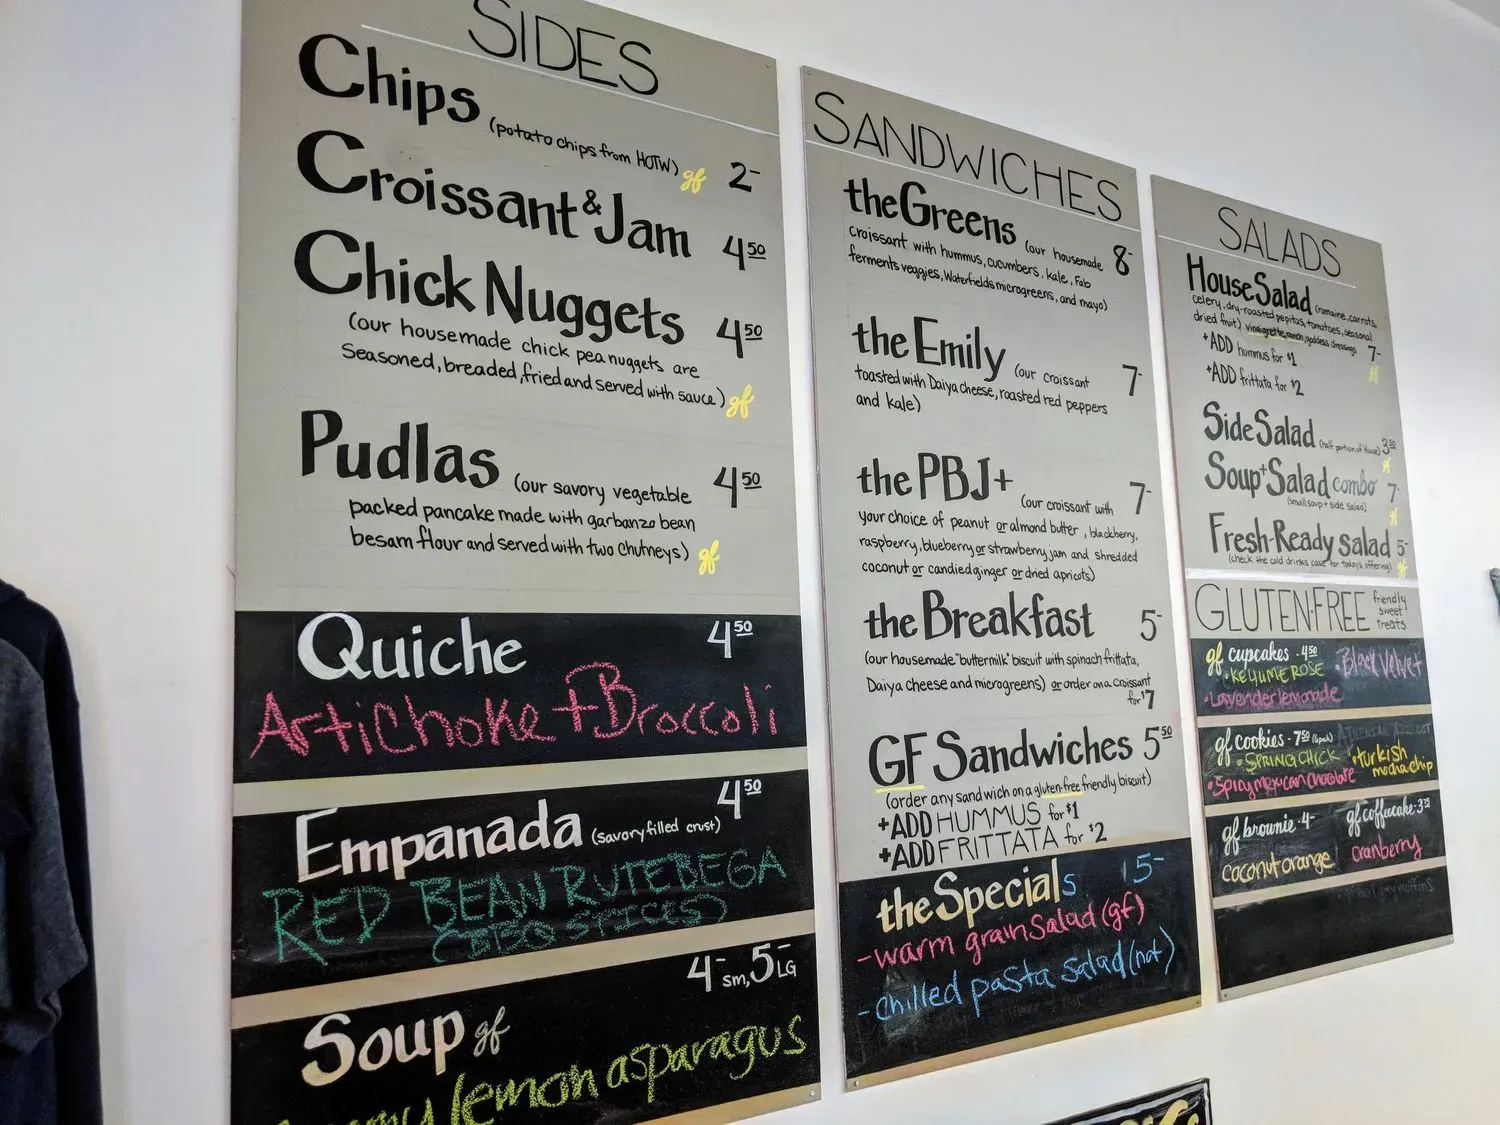 SIDES
Chips (potato chips from HOTW) gf 2-
Croissant & Jam 4 50
Chick Nuggets 4 50
(our housemade chick pea nuggets are
seasoned, breaded, fried and served with sauce) gf
Pudlas (our savory vegetable 4 50
packed pancake made with garbanzo bean
besam flour and served with two chutneys) gf
Quiche 4 50
Artichoke + Broccoli
Empanada (savory filled crust) 4 50
RED BEAN RUTEBEGA
(BBQ SPICES)
4- sm, 5- LG
Soup gf
lemon asparagus
SANDWICHES
the Greens (our housemade 8-
croissant with hummus, cucumbers, kale, Fab
ferments veggies, Waterfields microgreens, and mayo)
the Emily (our croissant 7-
toasted with Daiya cheese, roasted red peppers
and kale)
the PBJ+ (our croissant with 7-
your choice of peanut or almond butter, blackberry,
raspberry, blueberry or strawberry jam and shredded
coconut or candied ginger or dried apricots)
the Breakfast 5-
(our housemade "buttermilk" biscuit with spinach frittata,
Daiya cheese and microgreens) or order on a croissant
for $7
GF Sandwiches 5 50
(order any sandwich on a gluten-free friendly biscuit)
+ADD HUMMUS for $1
+ADD FRITTATA for $2
the Specials 5-
-warm grain Salad (gf)
-chilled pasta salad (not)
SALADS
House Salad (romaine, carrots,
celery, dry-roasted pepitas, tomatoes, seasonal
dried fruit) vinaigrette, ranch, goddess dressings 7-
+ADD hummus for $1 gf
+ADD frittata for $2
Side Salad (half portion of House) 3 50
gf
Soup + Salad combo 7-
(small soup + side salad) gf
Fresh-Ready salad 5-
(check the cold drinks case for today's offering) gf
GLUTEN-FREE friendly
sweet
treats
gf cupcakes - 4 50 • Black Velvet
• KEYLIME ROSE
• Lavender lemonade
gf cookies - 7 50 (6 pack)
• SPRING CHICK • turkish
mocha chip
• Spicy mexican chocolate
gf brownie - 4- gf coffeecake - 3 75
coconut orange cranberry